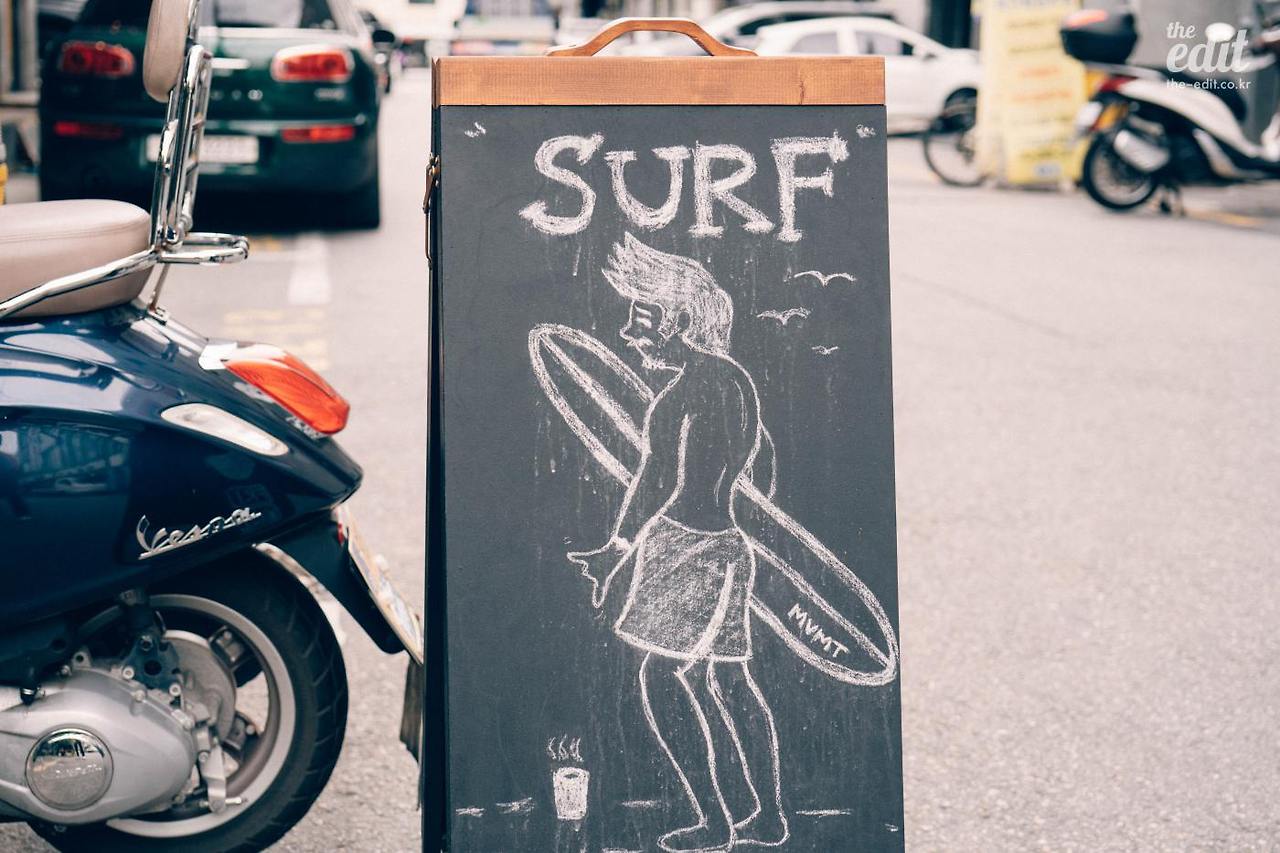 the
edit
the-edit.co.kr
SURF
Vespa
MVMT